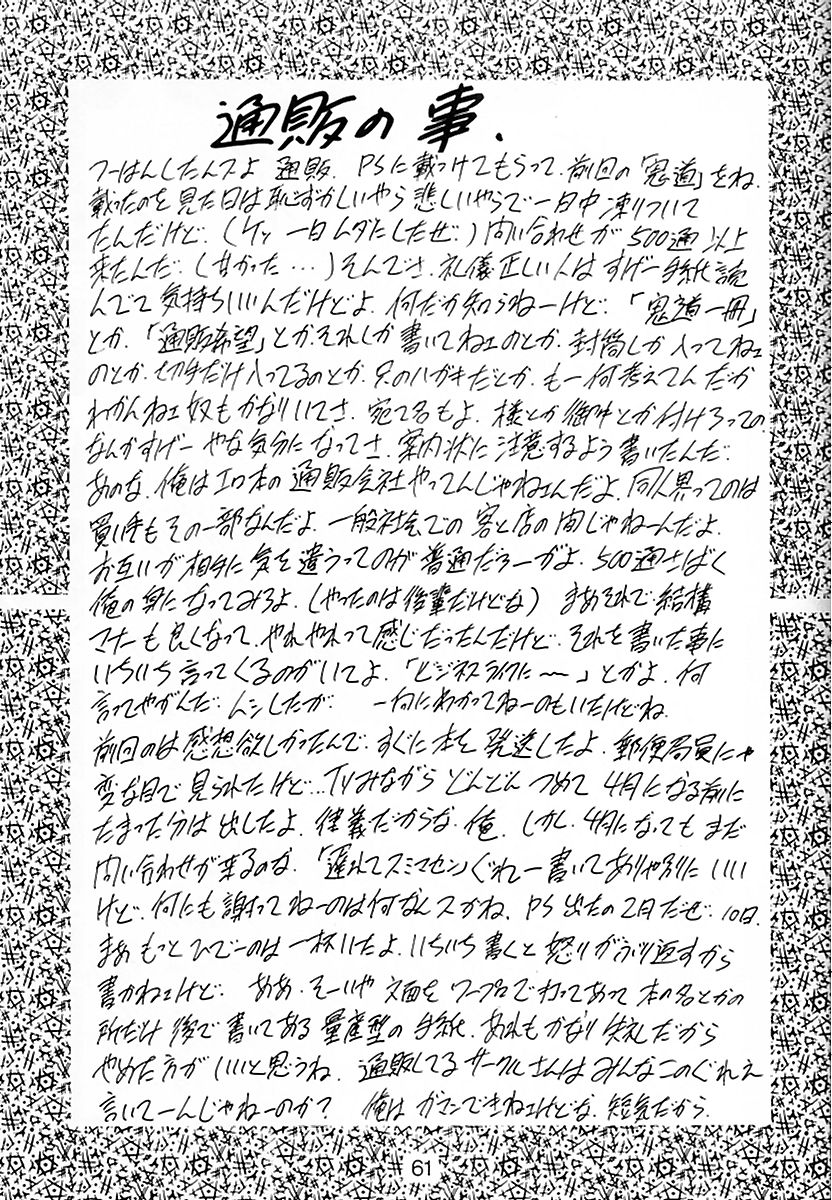 通販の事.
つーはんしたんスよ 通販. PSに載っけてもらって. 前回の「鬼道」をね.
載ったのを見た日は恥ずかしいやら悲しいやらで一日中凍りついて
たんだけど. (ケッ 一日ムダにしたぜ.) 問い合わせが500通以上
来たんだ. (甘かった…) そんでさ. 礼儀正しい人はすげー手紙読
んでて気持ちいいんだけどよ. 何だか知らねーけど. 「鬼道一冊」
とか. 「通販希望」とかそれしか書いてねェのとか. 封筒しか入ってねェ
のとか. 切手だけ入ってるのとか. 只のハガキだとか. もー何考えてんだか
わかんねェ奴もかなりいてさ. 宛て名もよ. 様とか御中とか付けろっての.
なんかすげー やな気分になってさ. 案内状に注意するよう書いたんだ.
あのな. 俺はエロ本の通販会社やってんじゃねェんだよ. 同人界ってのは
買い手もその一部なんだよ. 一般社会での客と店の間じゃねーんだよ.
お互いが相手に気を遣うってのが普通だろーがよ. 500通さばく
俺の身になってみろよ. (やったのは後輩だけどな) まあそれで結構
マナーも良くなって. やれやれって感じだったんだけど. それを書いた事に
いちいち言ってくるのがいてよ. 「ビジネスライクに〜」とかよ. 何
言ってやがんだ. ムシしたが. 一向にわかってねーのもいたけどね.
前回のは感想欲しかったんで. すぐに本を発送したよ. 郵便局員にゃ
変な目で見られたけど… TVみながら どんどん つめて 4月になる前に
たまった分は出したよ. 律義だからな. 俺. しかし. 4月になっても まだ
問い合わせが来るのな. 「遅れてスミマセン」ぐれー書いてありゃ別にいい
けど. 何にも謝ってねーのは何なんスかね. PS出たの2月だぜ. 10日.
まあ もっとひでーのは一杯いたよ. いちいち書くと怒りがぶり返すから
書かねェけど. ああ. そーいや 文面をワープロで打ってあって 本の名とかの
所だけ後で書いてある量産型の手紙. あれもかなり失礼だから
やめた方がいいと思うね. 通販してるサークルさんはみんなこのぐれェ
言いてーんじゃねーのか? 俺はガマンできねェけどな. 短気だから.
61